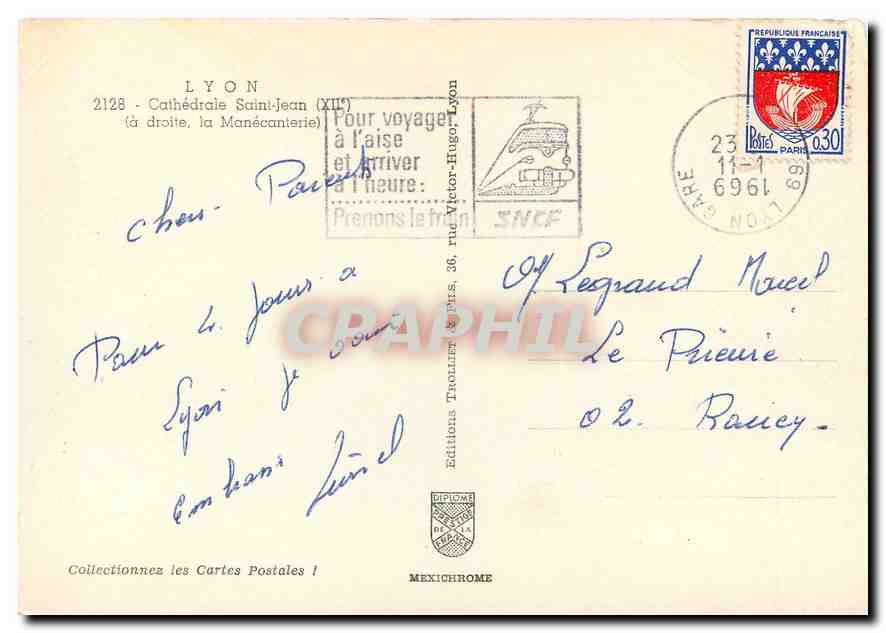 LYON
2128 - Cathédrale Saint-Jean (XIIe)
(à droite, la Manécanterie)
Pour voyager
à l'aise
et arriver
à l'heure :
Prenons le train
SNCF
REPUBLIQUE FRANÇAISE
POSTES PARIS 0,30
23
11-1
1969
69 LYON GARE
Chers Parents
Pour 4 Jours a
Lyon je vous
embrasse
Legrand Marcel
Le Prieuré
02.
CPAPHIL
Editions TROLLIET & Fils, 36, rue Victor-Hugo, Lyon
DIPLOME
PRESTIGE
DE LA
FRANCE
MEXICHROME
Collectionnez les Cartes Postales !